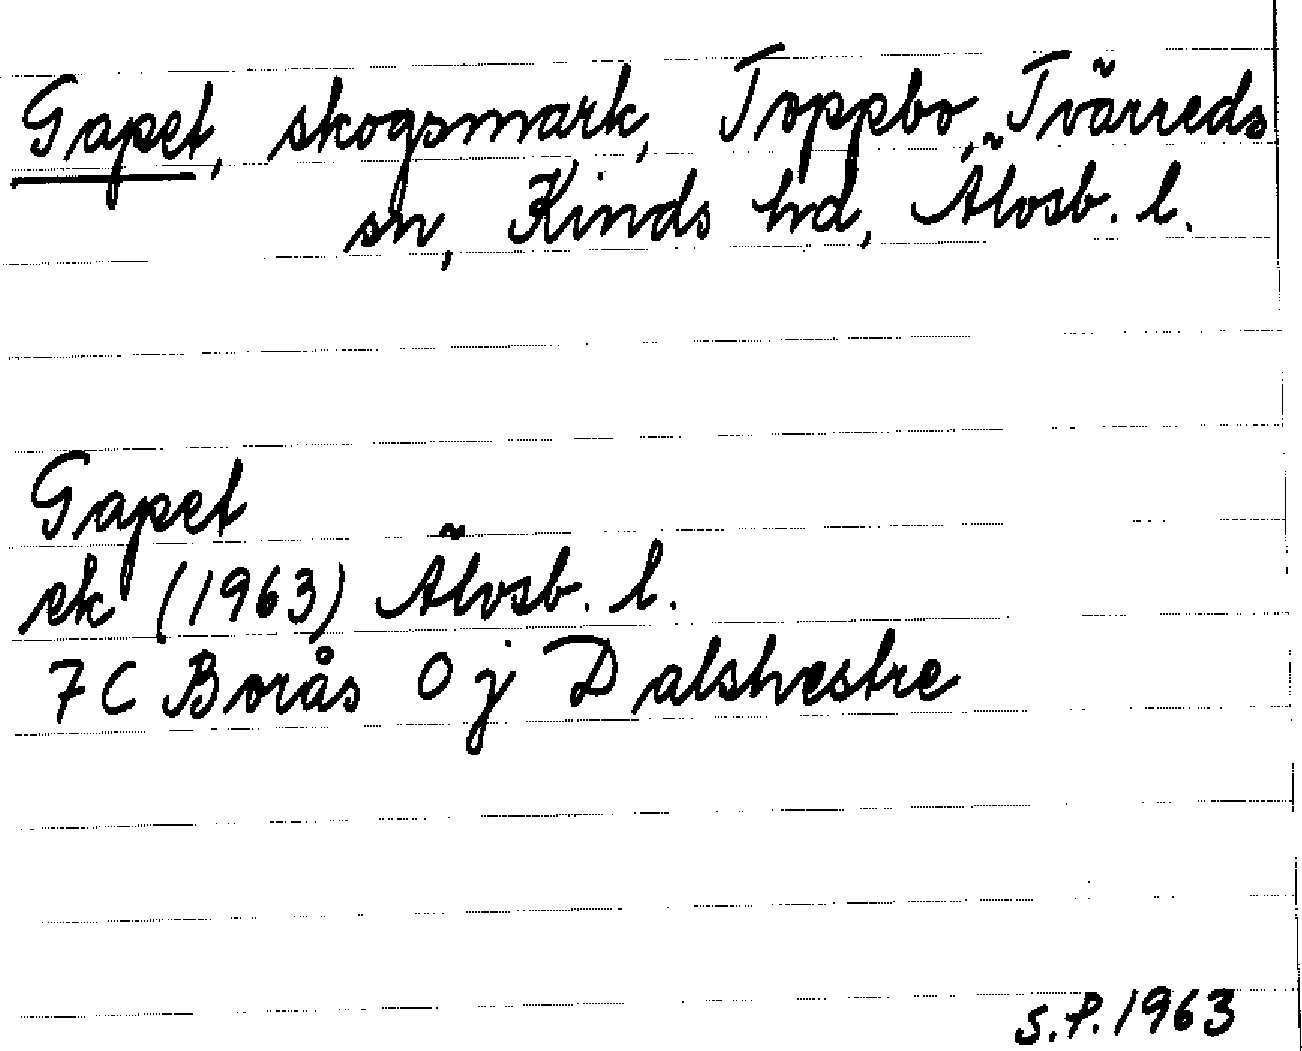 Gapet, skogsmark, Toppbo, Tvärreds
sn, Kinds hd, Älvsb. l.
Gapet
ek (1963) Älvsb. l.
7C Borås 0j Dalshestre
S.P. 1963